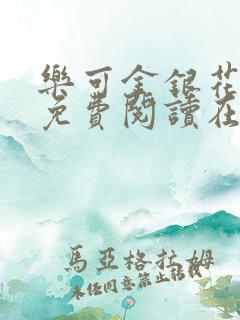 樂可金銀花
免費閱讀在
馬亞格拉姆
未經同意禁止轉載